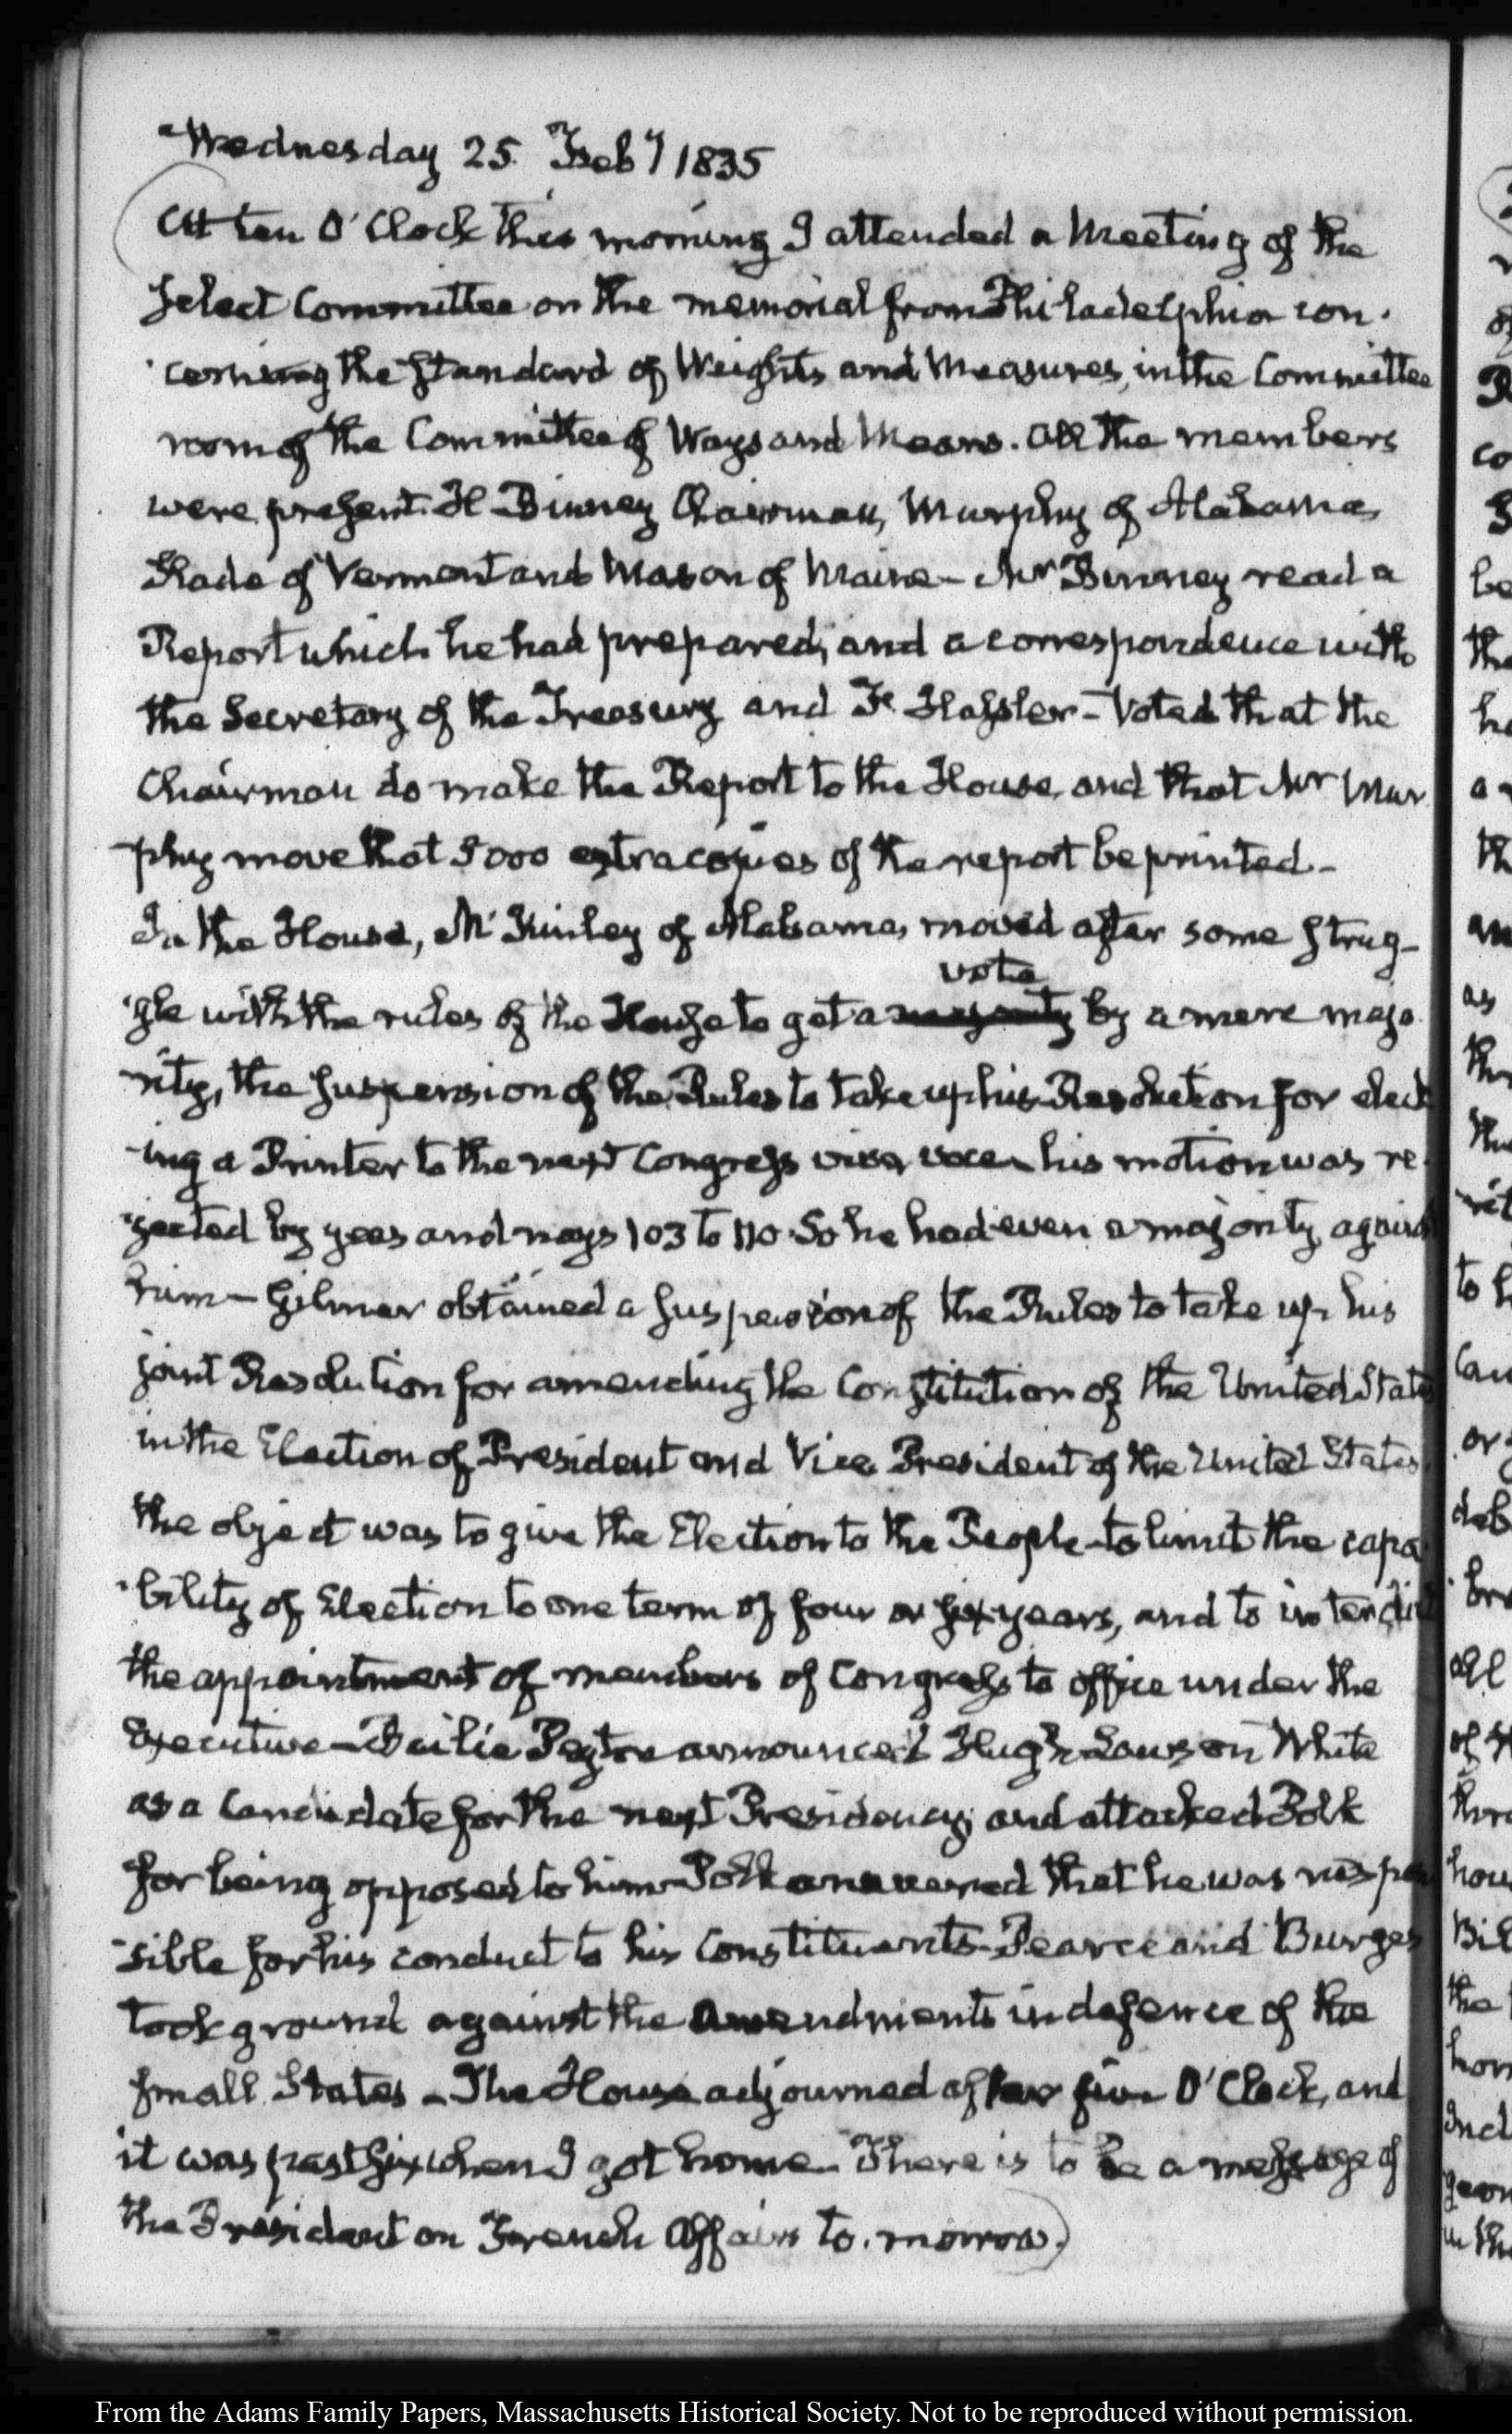 Wednesday 25. Feby 1835
At ten O'Clock this morning I attended a Meeting of the
Select Committee on the memorial from Philadelphia con-
-cerning the Standard of Weights and Measures, in the Committee
room of the Committee of Ways and Means. All the members
were present. H. Binney Chairman, Murphy of Alabama,
Slade of Vermont and Mason of Maine — Mr Binney read a
Report which he had prepared, and a correspondence with
the Secretary of the Treasury and F. Hassler — Voted that the
Chairman do make the Report to the House, and that Mr Mur
-phy move that 5000 extra copies of the report be printed —
In the House, McKinley of Alabama, moved after some strug-
-gle with the rules of the House to get a majority by a mere majo
vote
-rity, the suspension of the Rules to take up his Resolution for elect
-ing a Printer to the next Congress viva voce — his motion was re-
-jected by yeas and nays 103 to 110. So he had even a majority against
him — Gilmer obtained a suspension of the Rules to take up his
joint Resolution for amending the Constitution of the United States
in the Election of President and Vice President of the United States.
the object was to give the Election to the People — to limit the capa
-bility of Election to one term of four or six years, and to interdict
the appointment of members of Congress to office under the
Executive — Bailie Peyton announced Hugh Lawson White
as a Candidate for the next Presidency, and attacked Polk
for being opposed to him — Polk answered that he was respon
-sible for his conduct to his Constituents — Pearce and Burges
took ground against the Amendments in defence of the
small States — The House adjourned after five O'Clock, and
it was past six when I got home. There is to be a message of
the President on French Affairs to-morrow.)
From the Adams Family Papers, Massachusetts Historical Society. Not to be reproduced without permission.